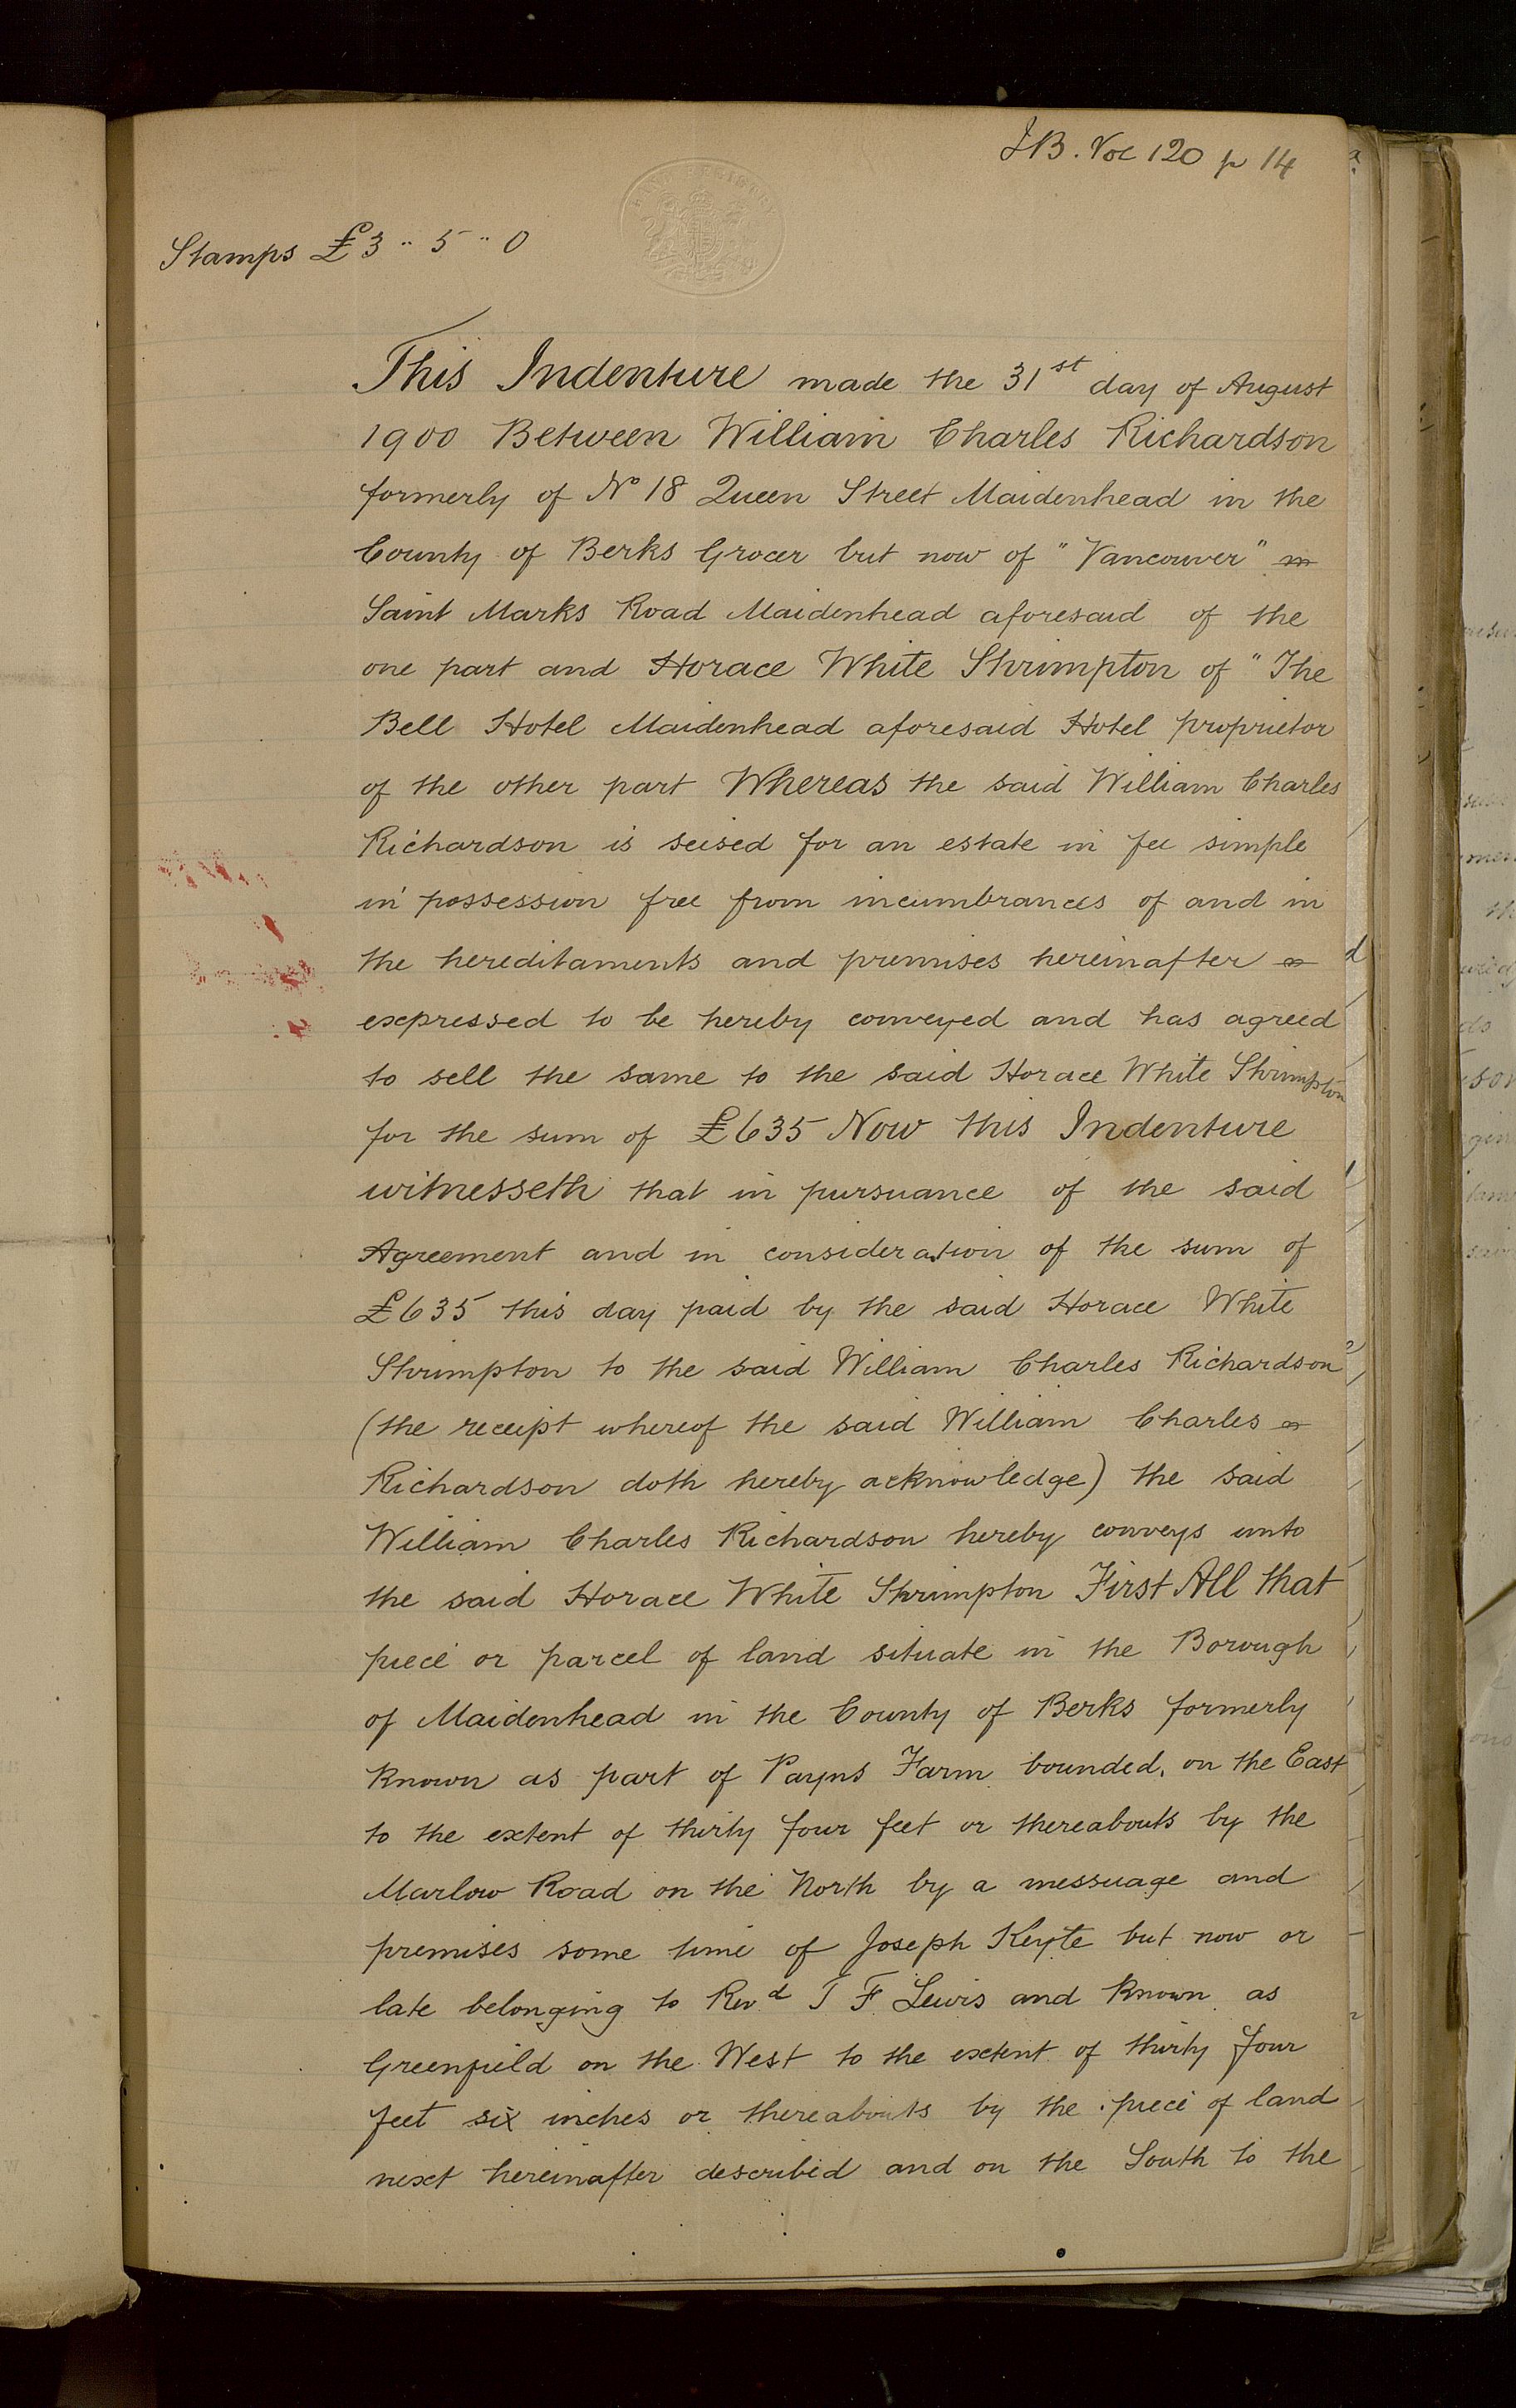 IB. Vol 120 p 14
Stamps £3 " 5 " 0
This Indenture made the 31st day of August
1900 Between William Charles Richardson
formerly of No 18 Queen Street Maidenhead in the
County of Berks Grocer but now of "Vancouver"
Saint Marks Road Maidenhead aforesaid of the
one part and Horace White Shrimpton of "The
Bell Hotel Maidenhead aforesaid Hotel proprietor
of the other part Whereas the said William Charles
Richardson is seised for an estate in fee simple
in possession free from incumbrances of and in
the hereditaments and premises hereinafter
expressed to be hereby conveyed and has agreed
to sell the same to the said Horace White Shrimpton
for the sum of £635 Now this Indenture
witnesseth that in pursuance of the said
Agreement and in consideration of the sum of
£635 this day paid by the said Horace White
Shrimpton to the said William Charles Richardson
(the receipt whereof the said William Charles
Richardson doth hereby acknowledge) the said
William Charles Richardson hereby conveys unto
the said Horace White Shrimpton First All that
piece or parcel of land situate in the Borough
of Maidenhead in the County of Berks formerly
known as part of Payns Farm bounded, on the East
to the extent of thirty four feet or thereabouts by the
Marlow Road on the North by a messuage and
premises some time of Joseph Keyte but now or
late belonging to Revd T F Lewis and known as
Greenfield on the West to the extent of thirty four
feet six inches or thereabouts by the piece of land
next hereinafter described and on the South to the